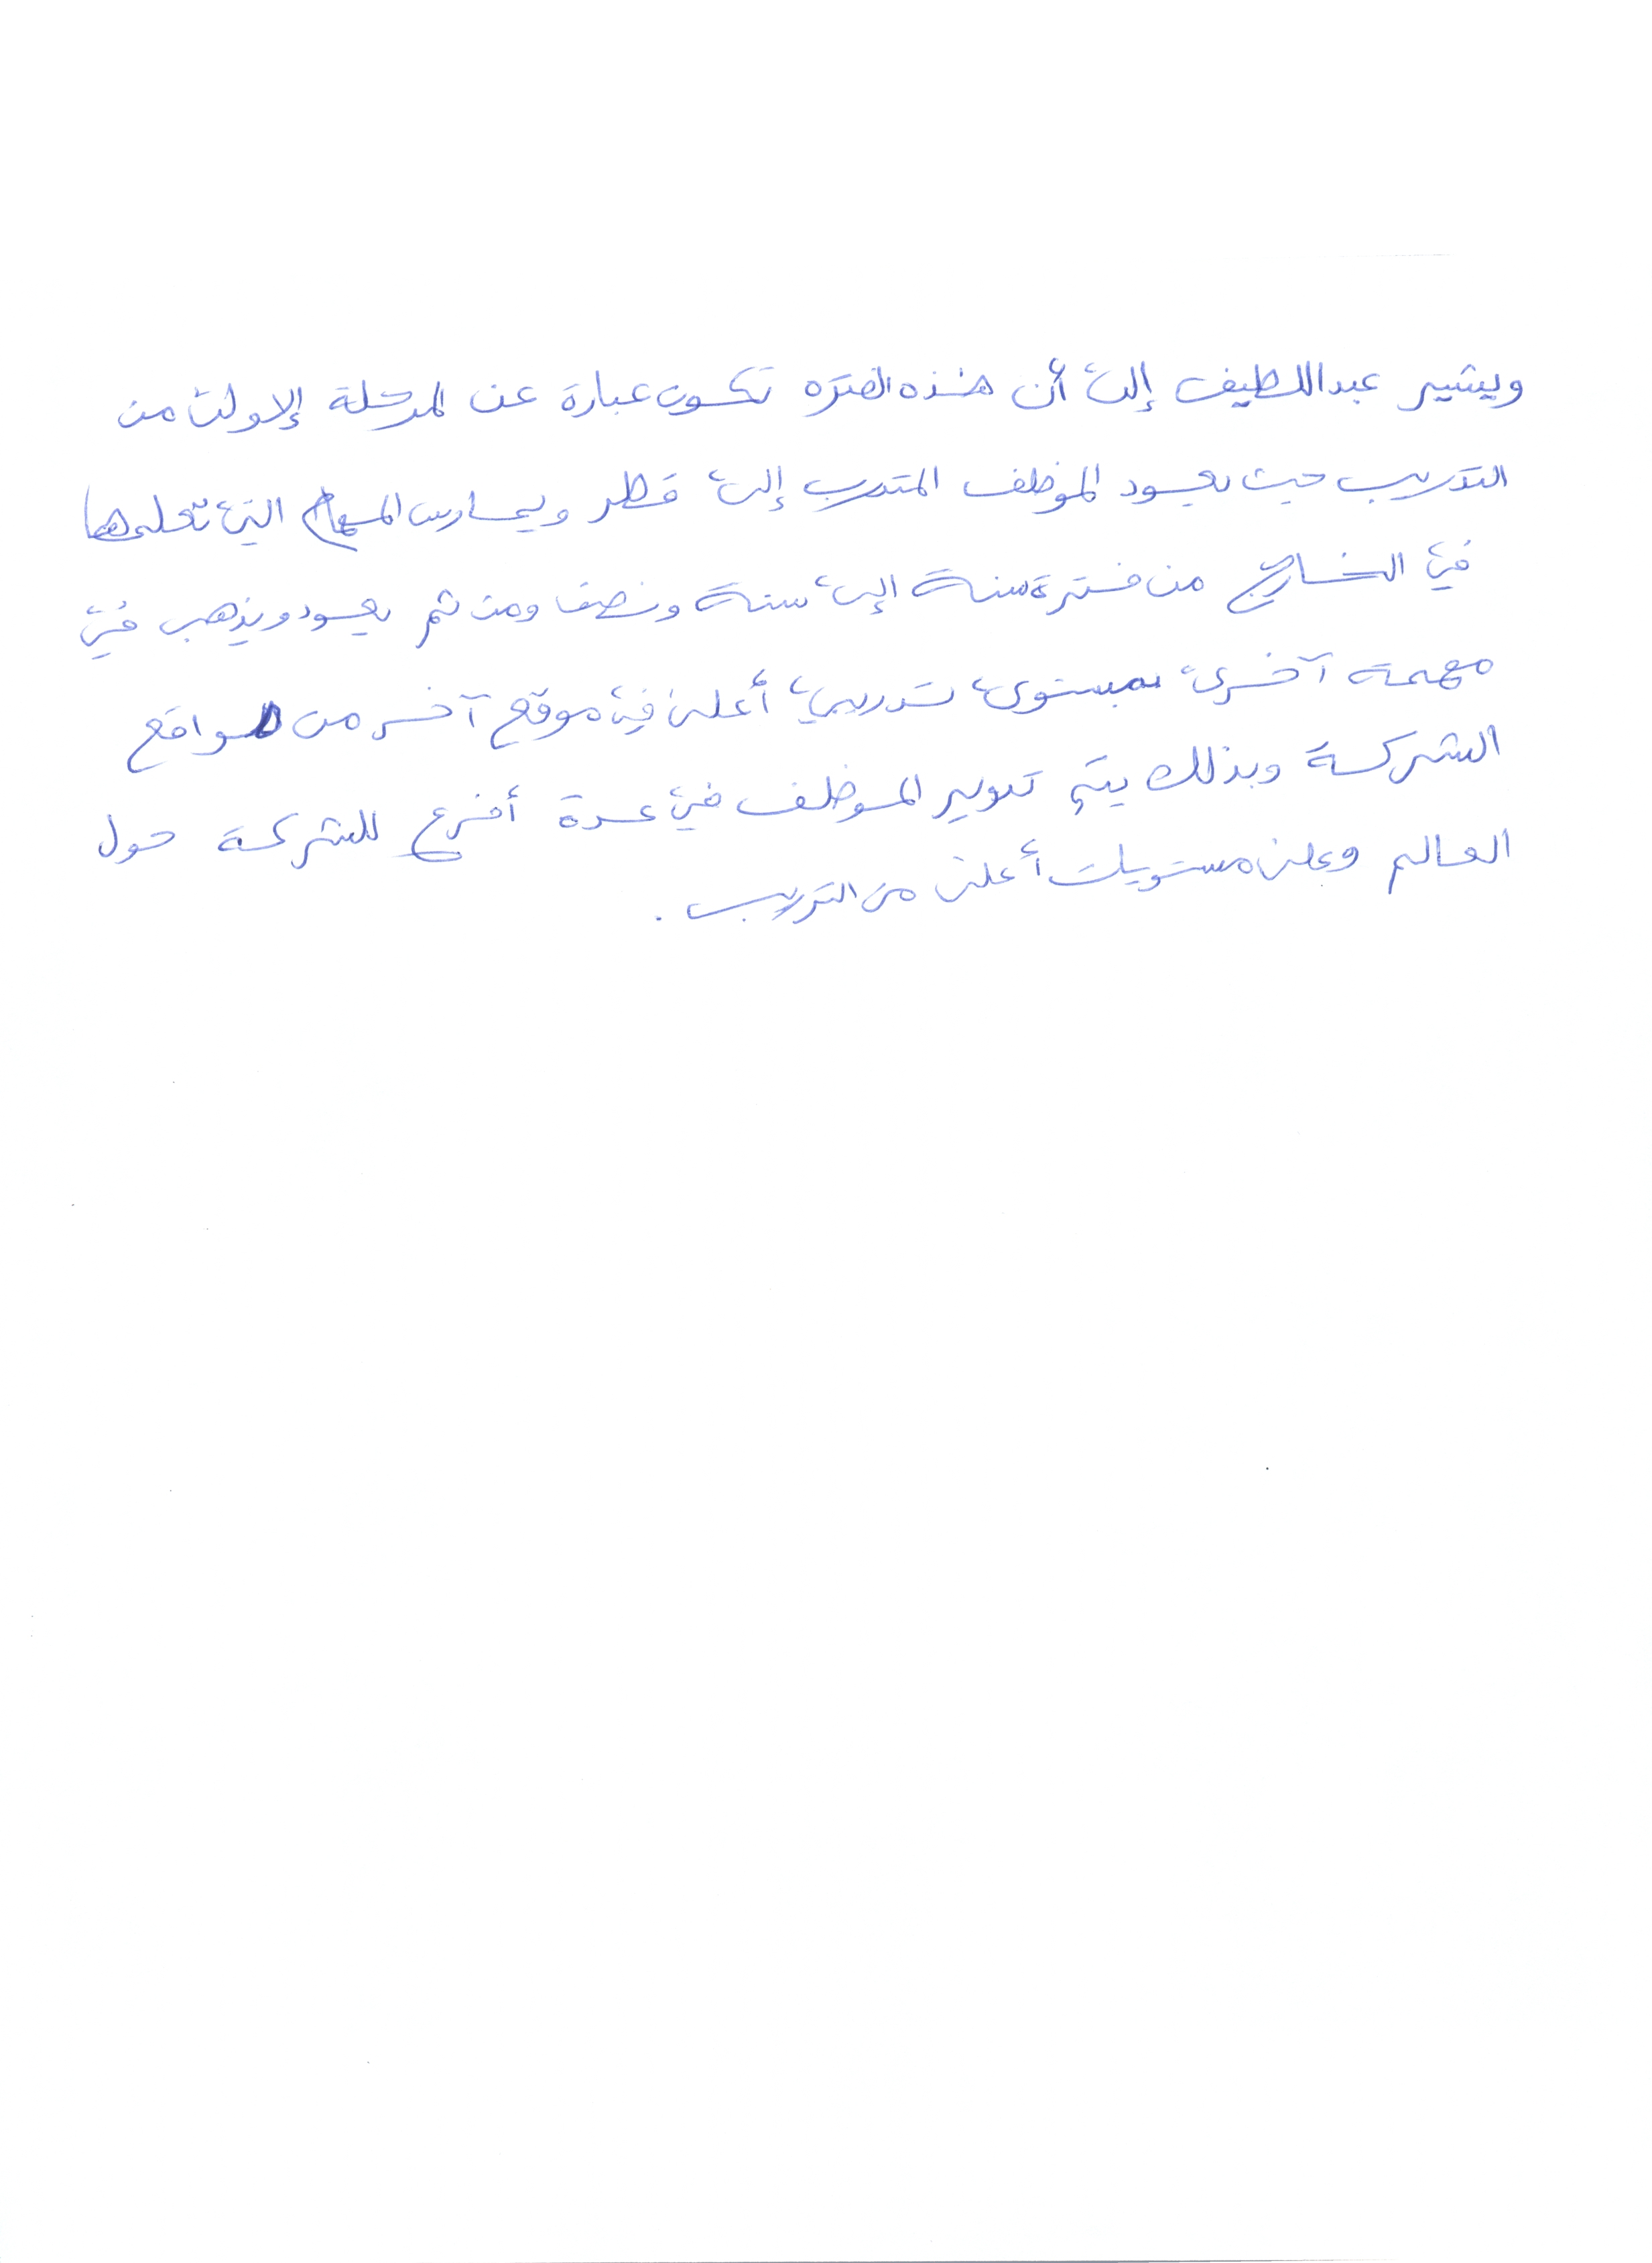 ويشير عبداللطيف إلى أن هذه الفتره تكون عبارة عن المرحلة الإولى من
التدريب حيث يعود الموظف المتدرب إلى قطر ويمارس المهام التي تعلمها
في الخارج من فترة سنة إلى سنة ونصف ومن ثم يعود ويذهب في
مهمة آخرى بمستوى تدريبي أعلى في موقع آخر من مواقع
الشركة وبذلك يتم تدوير الموظف في عدة أفرع للشركة حول
العالم وعلى مستويات أعلى من التدريب .